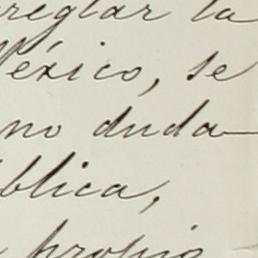 reglar la
México, se
no duda
blica,
propio